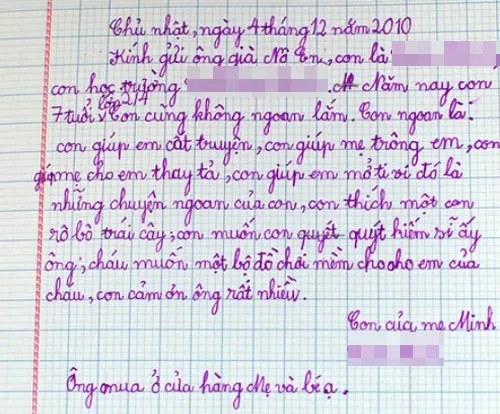 Chủ nhật, ngày 4 tháng 12 năm 2010
Kính gửi ông già Nô En, con là
con học trường . Năm nay con
lớp 2/4
7 tuổi, Con cũng không ngoan lắm. Con ngoan là:
con giúp em cất truyện, con giúp mẹ trông em, con
giúp mẹ cho em thay tả, con giúp em mở ti vi đó là
những chuyện ngoan của con, con thích một con
rô bô trái cây; con muốn con quyết quýt hiếm sĩ ấy
ông; cháu muốn một bộ đồ chơi mềm cho cho em của
cháu, con cảm ơn ông rất nhiều.
Con của mẹ Minh
Ông mua ở cửa hàng Mẹ và bé ạ.